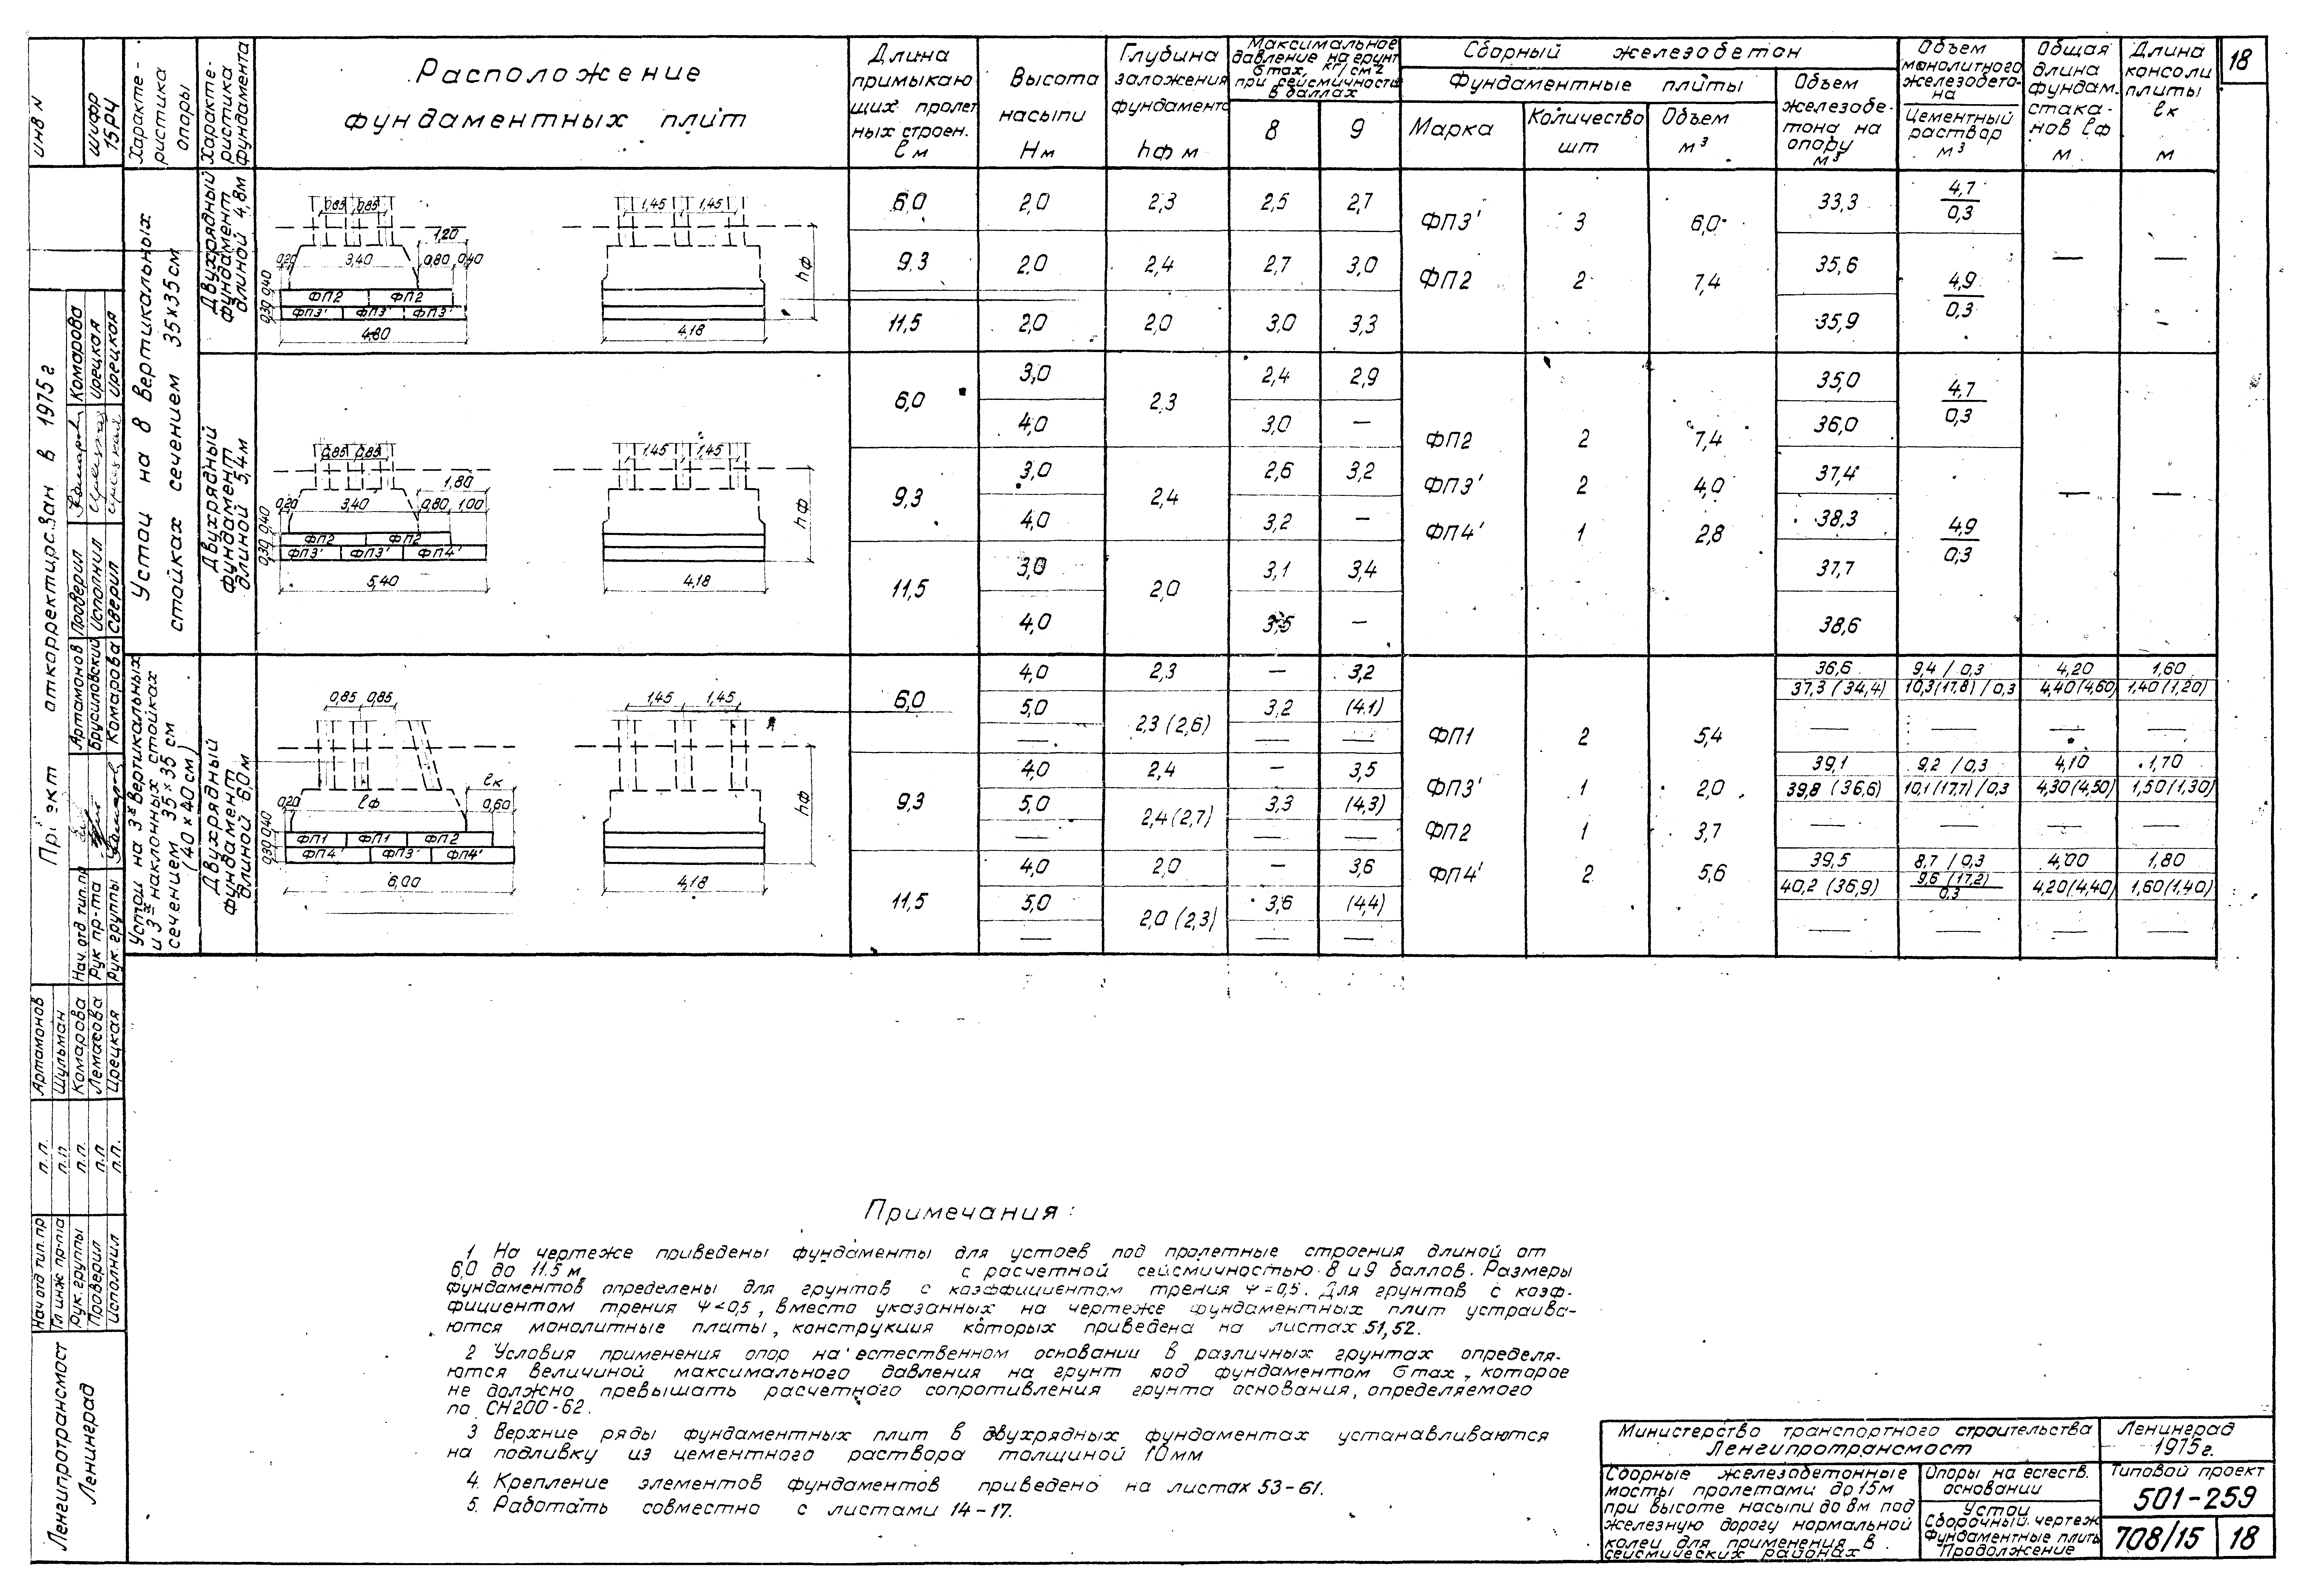 18
Характеристика опоры
Характеристика фундамента
Расположение
фундаментных плит
Длина примыкаю
щих пролет
ных строен.
l м
Высота
насыпи
H м
Глубина
заложения
фундамента
hф м
Максимальное
давление на грунт
σmax, кг/см2
при сейсмичности
в баллах
8 9
Сборный железобетон
Фундаментные плиты
Марка
Количество
шт
Объем
м3
Объем
железобе-
тона на
опору
м3
Объем
монолитного
железобето-
на
Цементный
раствор
м3
Общая
длина
фундам.
стака-
нов lф
м
Длина
консоли
плиты
lк
м
Устои на 8 вертикальных
стойках сечением 35×35см
Двухрядный
фундамент
длиной 4,8м
0,85 0,85
1,20
0,20 3,40 0,80 0,40
0,30 0,40
ФП2 ФП2
ФП3' ФП3' ФП3'
4,80
1,45 1,45
hф
4,18
6,0 2,0 2,3 2,5 2,7 33,3 4,7/0,3
9,3 2,0 2,4 2,7 3,0 35,6 4,9/0,3 — —
11,5 2,0 2,0 3,0 3,3 35,9
ФП3' 3 6,0
ФП2 2 7,4
Двухрядный
фундамент
длиной 5,4м
0,85 0,85
1,80
0,20 3,40 0,80 1,00
0,30 0,40
ФП2 ФП2
ФП3' ФП3' ФП4'
5,40
1,45 1,45
hф
4,18
6,0 3,0 2,3 2,4 2,9 35,0 4,7/0,3
4,0 3,0 — 36,0
9,3 3,0 2,4 2,6 3,2 37,4
4,0 3,2 — 38,3 4,9/0,3 — —
11,5 3,0 2,0 3,1 3,4 37,7
4,0 3,5 — 38,6
ФП2 2 7,4
ФП3' 2 4,0
ФП4' 1 2,8
Устои на 3х вертикальных
и 3х наклонных стойках
сечением 35×35 см
(40×40см)
Двухрядный
фундамент
длиной 6,0м
0,85 0,85
lк
0,20 lф 0,60
0,30 0,40
ФП1 ФП1 ФП2
ФП4' ФП3' ФП4'
6,00
1,45 1,45
hф
4,18
6,0 4,0 2,3 — 3,2 36,6 9,4 / 0,3 4,20 1,60
5,0 2,3 (2,6) 3,2 (4.1) 37,3 (34,4) 10,3(17,8) / 0,3 4,40(4,60) 1,40(1,20)
— — — — — — —
9,3 4,0 2,4 — 3,5 39,1 9,2 / 0,3 4,10 1,70
5,0 2,4 (2,7) 3,3 (4,3) 39,8 (36,6) 10,1(17,7) / 0,3 4,30(4,50) 1,50(1,30)
— — — — — — —
11,5 4,0 2,0 — 3,6 39,5 8,7 / 0,3 4,00 1,80
5,0 2,0 (2,3) 3,6 (4,4) 40,2 (36,9) 9,6 (17,2)/0,3 4,20(4,40) 1,60(1.40)
— — — — — — —
ФП1 2 5,4
ФП3' 1 2,0
ФП2 1 3,7
ФП4' 2 5,6
Примечания:
1 На чертеже приведены фундаменты для устоев под пролетные строения длиной от
6,0 до 11.5 м, с расчетной сейсмичностью 8 и 9 баллов. Размеры
фундаментов определены для грунтов с коэффициентом трения Ψ = 0,5. Для грунтов с коэф-
фициентом трения Ψ < 0,5, вместо указанных на чертеже фундаментных плит устраива-
ются монолитные плиты, конструкция которых приведена на листах 51, 52.
2 Условия применения опор на естественном основании в различных грунтах определя-
ются величиной максимального давления на грунт под фундаментом σmax, которое
не должно превышать расчетного сопротивления грунта основания, определяемого
по СН200-62.
3 Верхние ряды фундаментных плит в двухрядных фундаментах устанавливаются
на подливку из цементного раствора толщиной 10мм
4. Крепление элементов фундаментов приведено на листах 53-61.
5. Работать совместно с листами 14-17.
Министерство транспортного строительства
Ленгипротрансмост
Ленинград
1975г.
Сборные железобетонные
мосты пролетами до 15м
при высоте насыпи до 8м под
железную дорогу нормальной
колеи для применения в
сейсмических районах
Опоры на естеств.
основании
Устои
Сборочный чертеж
Фундаментные плиты
Продолжение
Типовой проект
501-259
708/15 18
инв N
шифр
15РЧ
откорректирован в 1975г
Артамонов Проверил Комарова
Брусиловский Исполнил Ирецкая
Комарова Сверил Ирецкая
Нач. отд тип.пр
Рук пр-та
Рук. группы
Нач отд тип.пр п.п. Артамонов
Гл инж пр-та п.п Шульман
Рук. группы п.п. Комарова
Проверил п.п Лемасова
Исполнил п.п. Ирецкая
Ленгипротрансмост
Ленинград